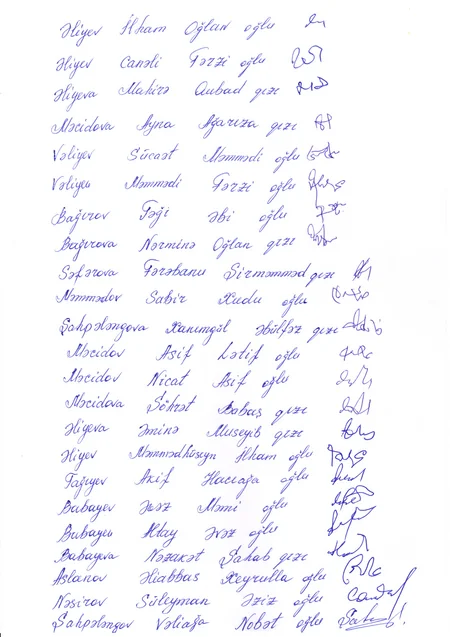 Əliyev İlham Oğlan oğlu
Əliyev Canəli Tərzi oğlu
Əliyeva Mahirə Qubad qızı
Məcidova Ayna Ağarıza qızı
Vəliyev Sücaət Məmmədi oğlu
Vəliyev Məmmədi Tərzi oğlu
Bağırov Tağı Əbi oğlu
Bağırova Nərminə Oğlan qızı
Səfərova Fərəbanu Şirməmməd qızı
Məmmədov Sabir Xudu oğlu
Şahpələngova Xanımgül Əbülfəz qızı
Məcidov Asif Lətif oğlu
Məcidov Nicat Asif oğlu
Məcidova Şöhrət Babaş qızı
Əliyeva Əminə Museyib qızı
Əliyev Məmmədhüseyn İlham oğlu
Tağıyev Akif Hacıağa oğlu
Babayev Əvəz Məmi oğlu
Babayev Altay Əvəz oğlu
Babayeva Nəzakət Sahab qızı
Aslanov Əliabbas Xeyrulla oğlu
Nəsirov Süleyman Əziz oğlu
Şahpələngov Vəliağa Nobət oğlu